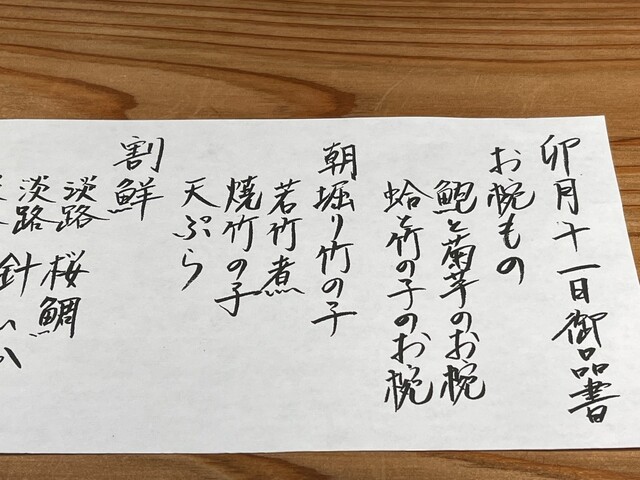 卯月十一日御品書
お椀もの
鮑と菊芋のお椀
蛤と竹の子のお椀
朝堀り竹の子
若竹煮
焼竹の子
天ぷら
割鮮
淡路 桜鯛
淡路 針いか